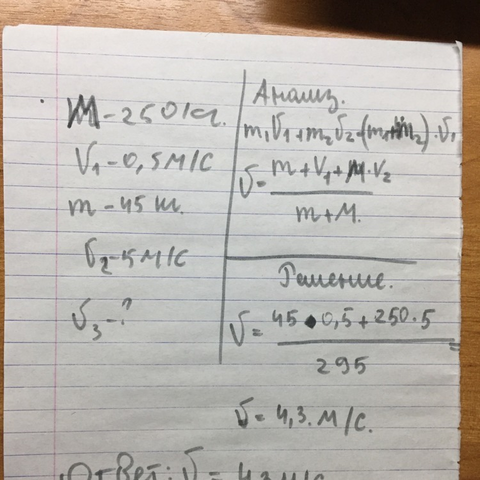 M - 250 кг.
V₁ - 0,5 м/с
m - 45 кг.
V₂ - 5 м/с
V₃ - ?
Анализ.
m₁V₁ + m₂V₂ = (m₁ + m₂) · V₁
V = m + V₁ + M · V₂
m + M.
Решение.
V = 45 · 0,5 + 250 · 5
295
V = 4,3 . м/с.
Ответ: V = 4,3 м/с